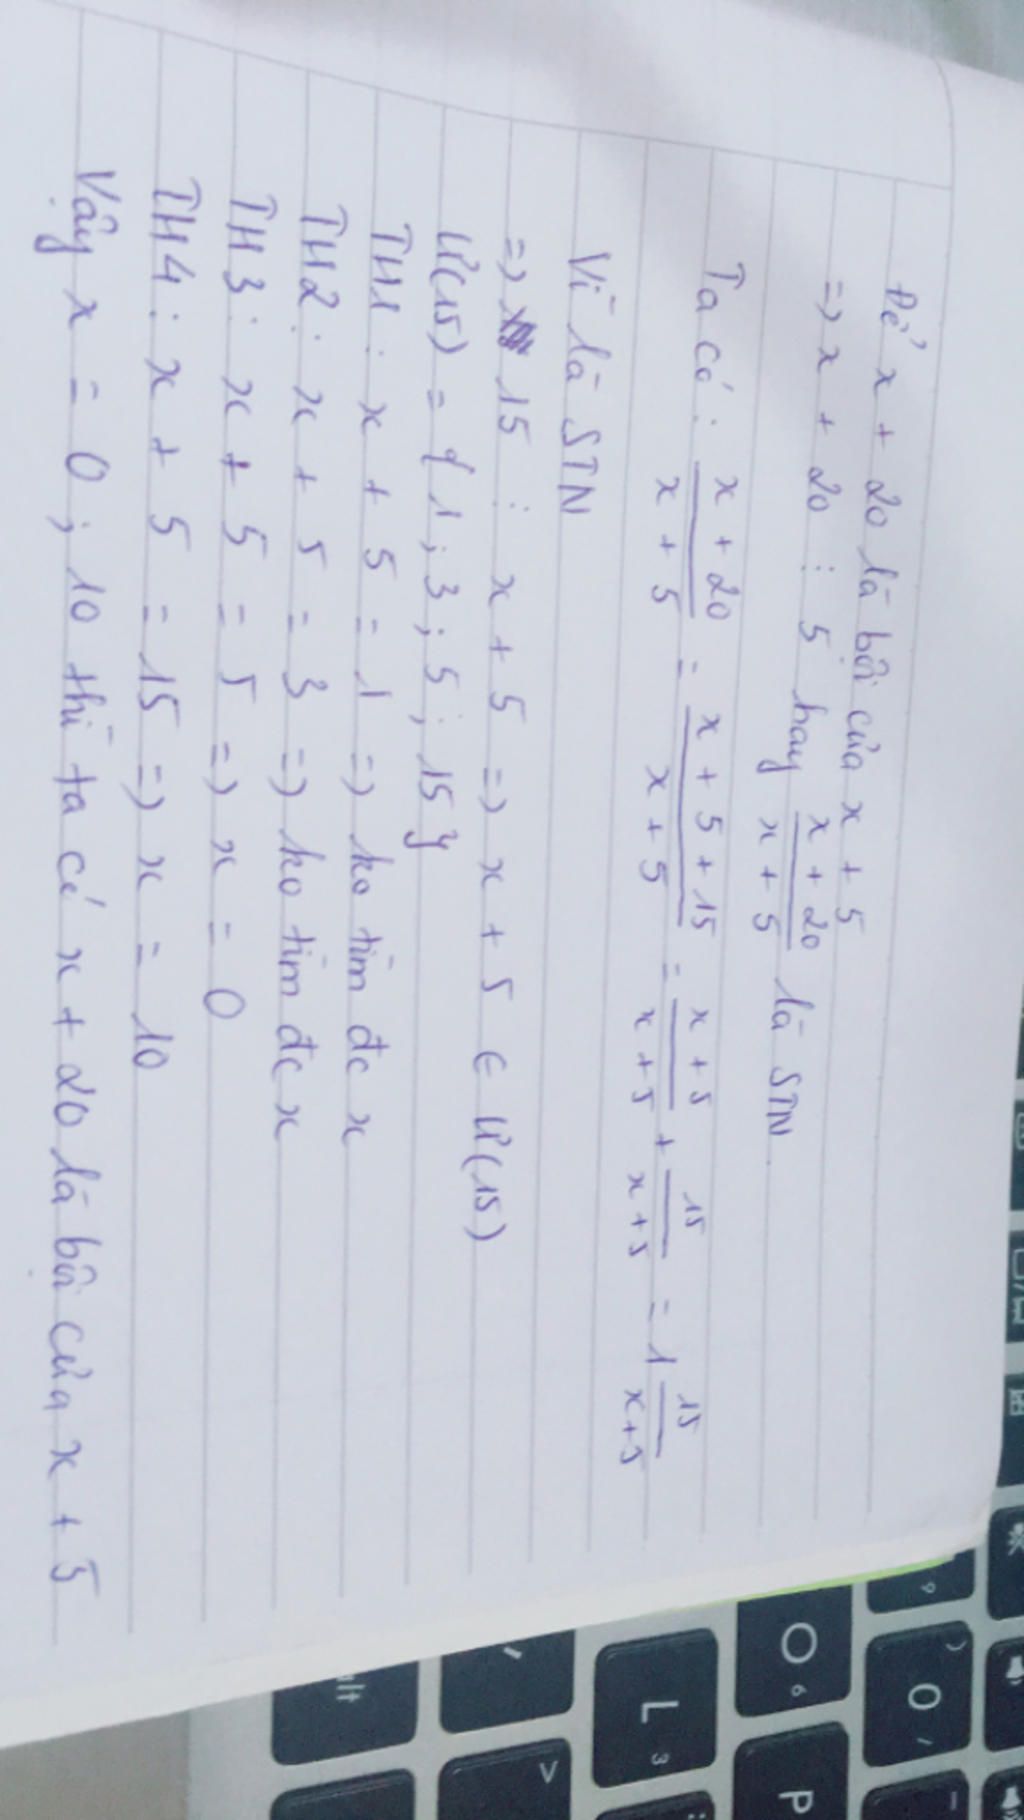 Để x + 20 là bội của x + 5
=> x + 20 ⋮ 5 hay x + 20 / x + 5 là STN.
Ta có : x + 20 / x + 5 = x + 5 + 15 / x + 5 = x + 5 / x + 5 + 15 / x + 5 = 1 15 / x + 5
Vì là STN
=> 15 ⋮ x + 5 => x + 5 ∈ Ư(15)
Ư(15) = { 1 ; 3 ; 5 ; 15 }
TH1 : x + 5 = 1 => ko tìm đc x
TH2 : x + 5 = 3 => ko tìm đc x
TH3 : x + 5 = 5 => x = 0
TH4 : x + 5 = 15 => x = 10
Vậy x = 0 ; 10 thì ta có x + 20 là bội của x + 5
L
3
O
6
P
9
)
0